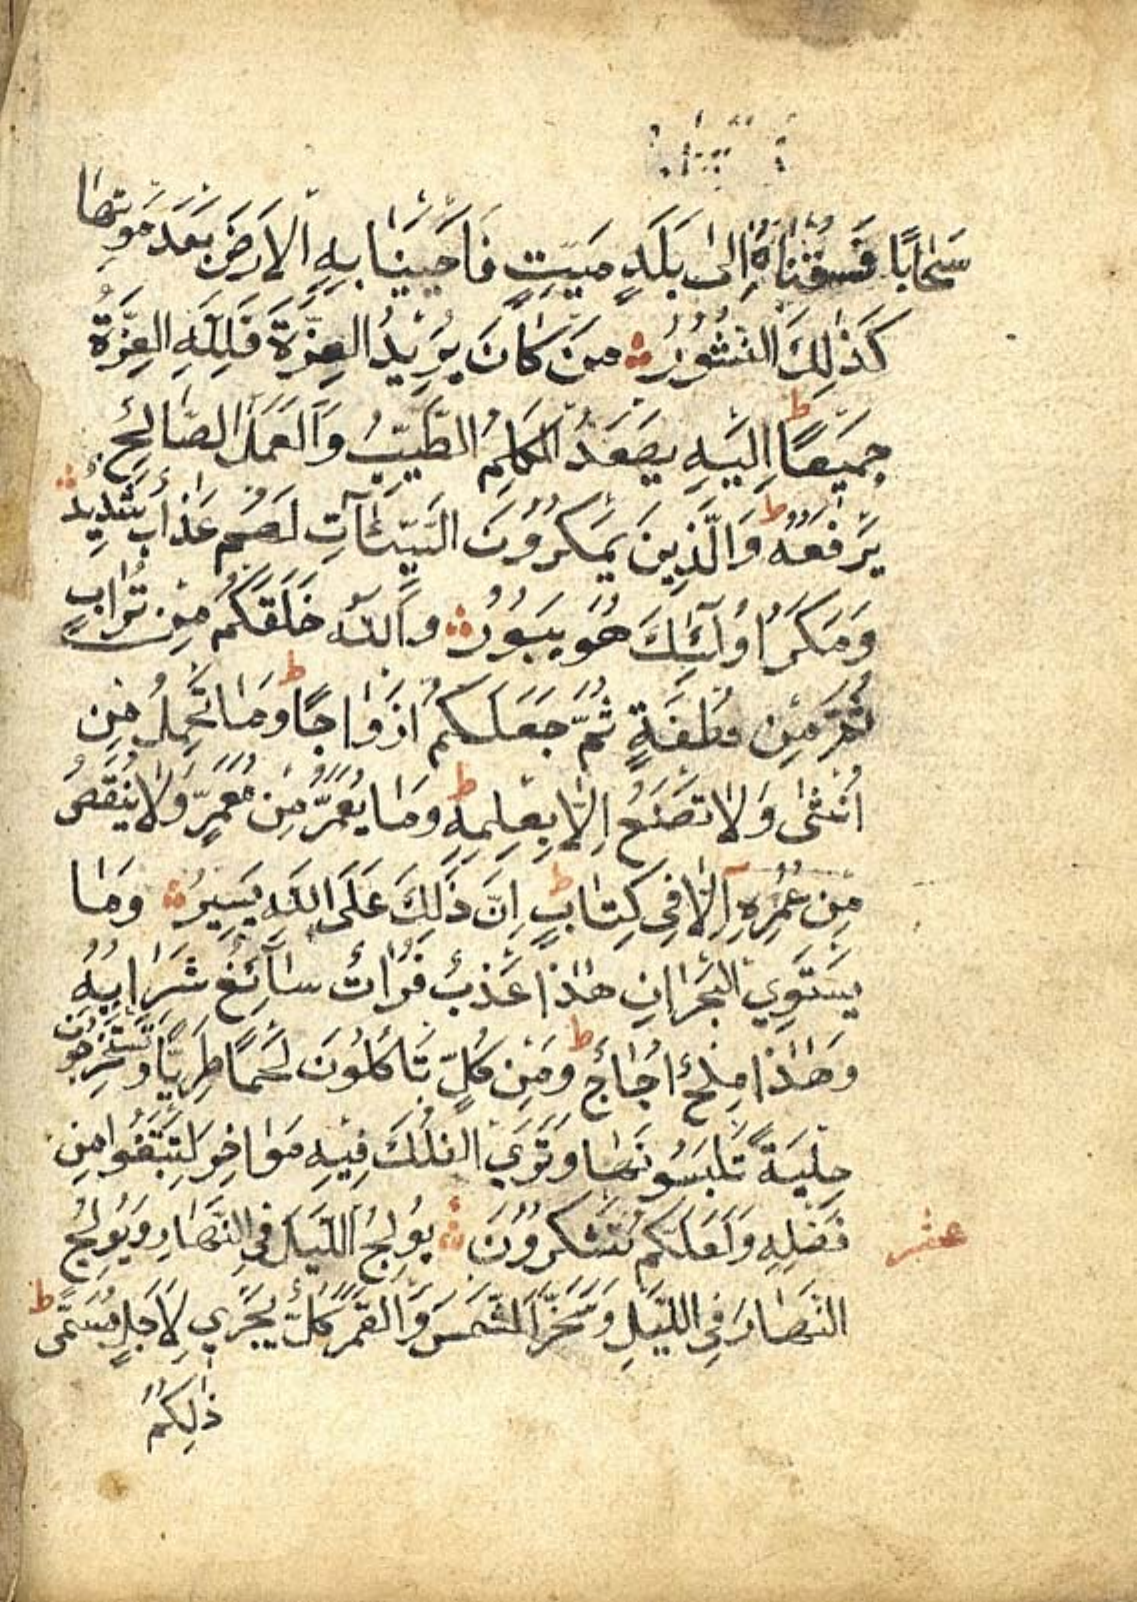 سَحَابًا فَسُقْنَاهُ اِلٰى بَلَدٍ مَيِّتٍ فَاَحْيَيْنَا بِهِ الْاَرْضَ بَعْدَ مَوْتِهَا
كَذٰلِكَ النُّشُوْرُ مَنْ كَانَ يُرِيْدُ الْعِزَّةَ فَلِلّٰهِ الْعِزَّةُ
جَمِيْعًا ط اِلَيْهِ يَصْعَدُ الْكَلِمُ الطَّيِّبُ وَالْعَمَلُ الصَّالِحُ
يَرْفَعُهُ ط وَالَّذِيْنَ يَمْكُرُوْنَ السَّيِّئَآتِ لَهُمْ عَذَابٌ شَدِيْدٌ
وَمَكْرُ اُولٰٓئِكَ هُوَ يَبُوْرُ وَاللّٰهُ خَلَقَكُمْ مِنْ تُرَابٍ
ثُمَّ مِنْ نُطْفَةٍ ثُمَّ جَعَلَكُمْ اَزْوَاجًا ط وَمَا تَحْمِلُ مِنْ
اُنْثٰى وَلَا تَضَعُ اِلَّا بِعِلْمِهِ ط وَمَا يُعَمَّرُ مِنْ مُعَمَّرٍ وَلَا يُنْقَصُ
مِنْ عُمُرِهِ اِلَّا فِي كِتَابٍ ط اِنَّ ذٰلِكَ عَلَى اللّٰهِ يَسِيْرٌ وَمَا
يَسْتَوِي الْبَحْرَانِ هٰذَا عَذْبٌ فُرَاتٌ سَآئِغٌ شَرَابُهُ
وَهٰذَا مِلْحٌ اُجَاجٌ ط وَمِنْ كُلٍّ تَأْكُلُوْنَ لَحْمًا طَرِيًّا وَتَسْتَخْرِجُوْنَ
حِلْيَةً تَلْبَسُوْنَهَا وَتَرَي الْفُلْكَ فِيْهِ مَوَاخِرَ لِتَبْتَغُوا مِنْ
فَضْلِهِ وَلَعَلَّكُمْ تَشْكُرُوْنَ يُوْلِجُ اللَّيْلَ فِي النَّهَارِ وَيُوْلِجُ
عشر
النَّهَارَ فِي اللَّيْلِ وَسَخَّرَ الشَّمْسَ وَالْقَمَرَ كُلٌّ يَجْرِي لِاَجَلٍ مُسَمًّى ط
ذٰلِكُمُ